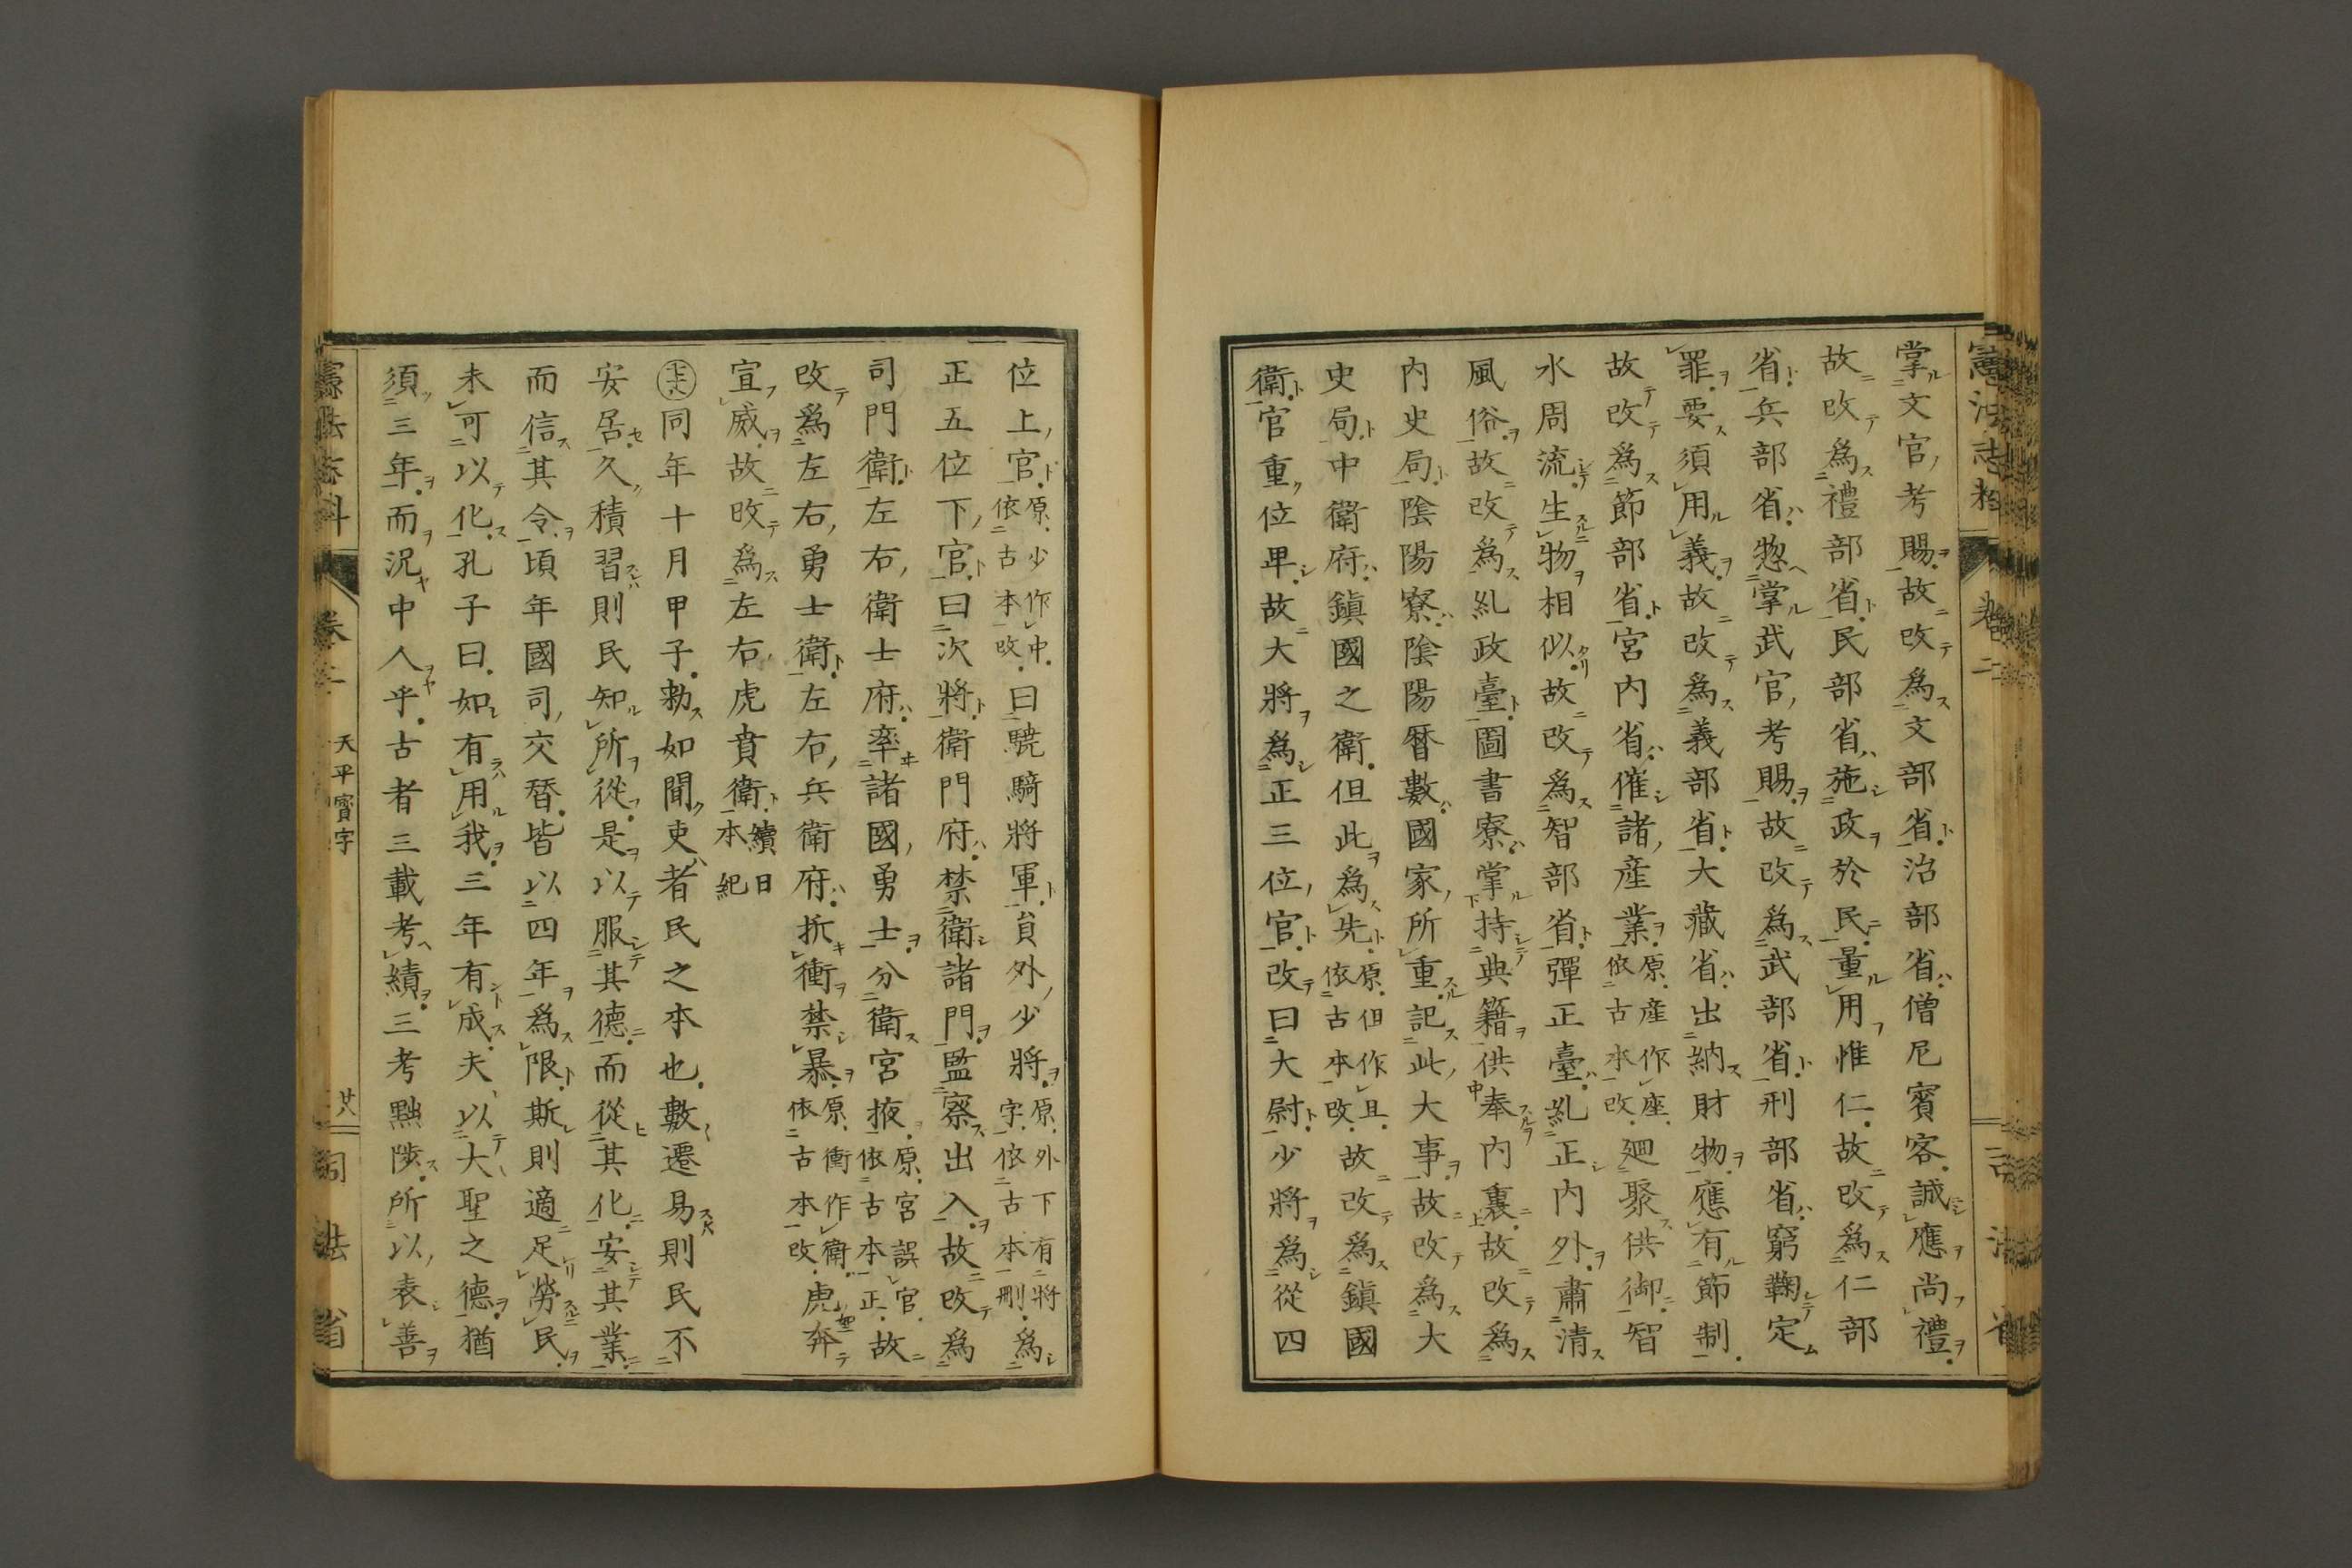 掌文官考賜故改爲文部省治部省僧尼賓客誠應尚禮
故改爲禮部省民部省施政於民量用惟仁故改爲仁部
省兵部省惣掌武官考賜故改爲武部省刑部省窮鞫定
罪要須用義故改爲義部省大藏省出納財物應有節制
故改爲節部省宮内省催諸産業原産作座依古本改廻聚供御智
水周流生物相似故改爲智部省彈正臺糺正内外肅清
風俗故改爲糺政臺圖書寮掌持典籍供奉内裏故改爲
内史局陰陽寮陰陽暦數國家所重記此大事故改爲大
史局中衛府鎭國之衛但此爲先原但作且依古本改故改爲鎭國
衛官重位卑故大將爲正三位官改曰大尉少將爲從四
位上官原少作中依古本改曰驍騎將軍員外少將原外下有將字依古本刪爲
正五位下官曰次將衛門府禁衛諸門監察出入故改爲
司門衛左右衛士府率諸國勇士分衛宮掖原宮誤官依古本正故
改爲左右勇士衛左右兵衛府折衝禁暴原衝作衛依古本改虎奔
宣威故改爲左右虎賁衛續日本紀
同年十月甲子勅如聞吏者民之本也數遷易則民不
安居久積習則民知所從是以服其德而從其化安其業
而信其令頃年國司交替皆以四年爲限斯則適足勞民
未可以化孔子曰如有用我三年有成夫以大聖之德猶
須三年而況中人乎古者三載考績三考黜陟所以表善
憲法志料
卷二
天平寶字
廿八
司法省